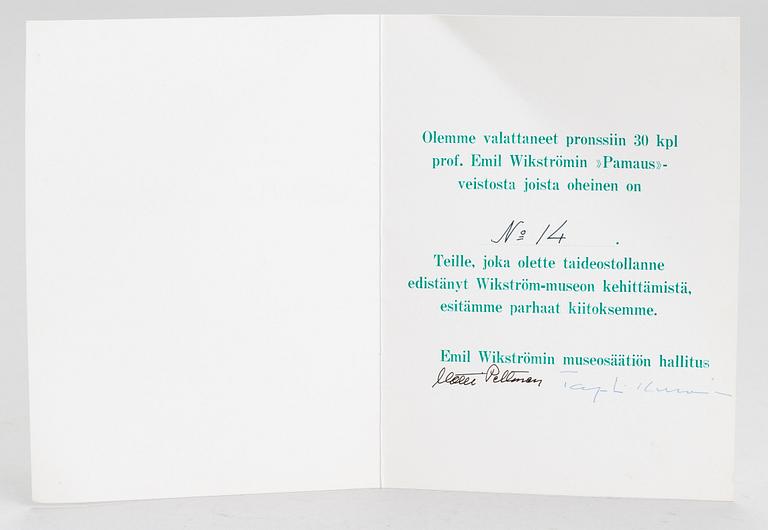 Olemme valattaneet pronssiin 30 kpl
prof. Emil Wikströmin »Pamaus»-
veistosta joista oheinen on
No 14 .
Teille, joka olette taideostollanne
edistänyt Wikström-museon kehittämistä,
esitämme parhaat kiitoksemme.
Emil Wikströmin museosäätiön hallitus
Pellman